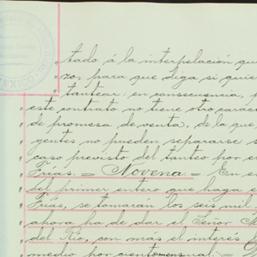 tado á la interpelación qu
zo, para que diga si quie
tantear: en consecuencia,
este contrato no tiene otro carac
de promesa de venta, de la que
gentes no pueden separarse s
caso previsto del tanteo por e
Frias. = Novena = En e
del primer entero que haga e
Frias, se tomarán los seis mil
ahora ha de dar el Señor
del Rio, con mas el interés
medio por ciento mensual: =